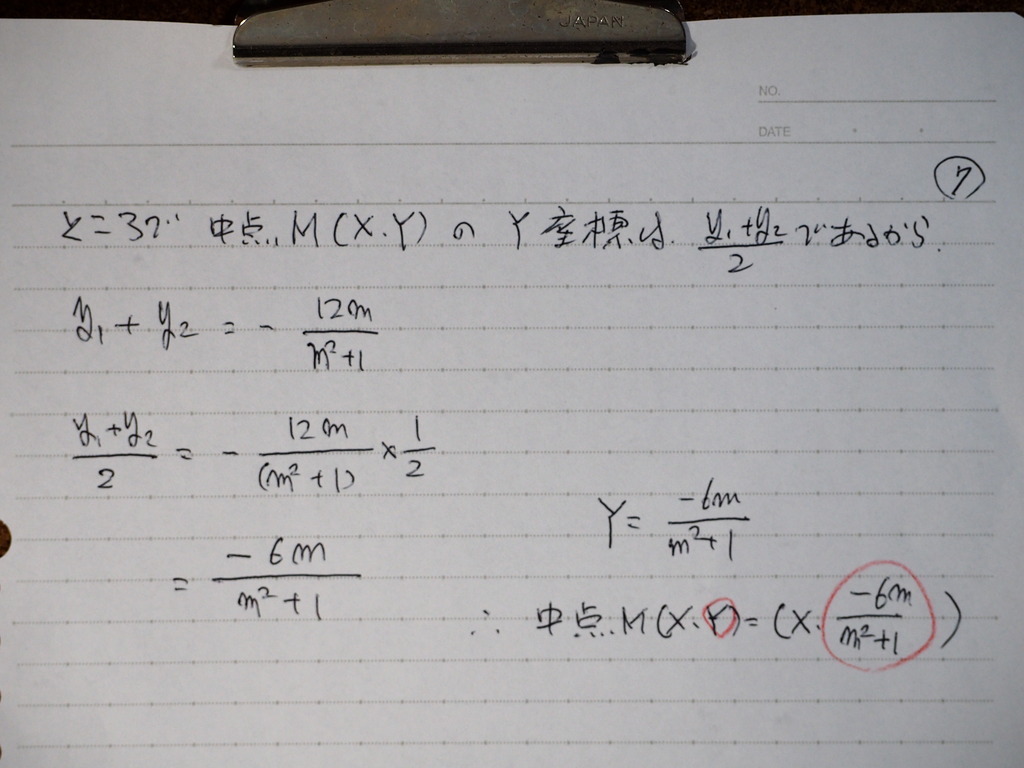 JAPAN
NO.
DATE
⑦
ところで 中点M(X、Y) の Y座標は、(y₁+y₂)/2 であるから、
y₁ + y₂ = - 12m/(m²+1)
(y₁+y₂)/2 = - 12m/(m²+1) × 1/2
= -6m/(m²+1)
Y = -6m/(m²+1)
∴ 中点M(X、Y) = (X、-6m/(m²+1))